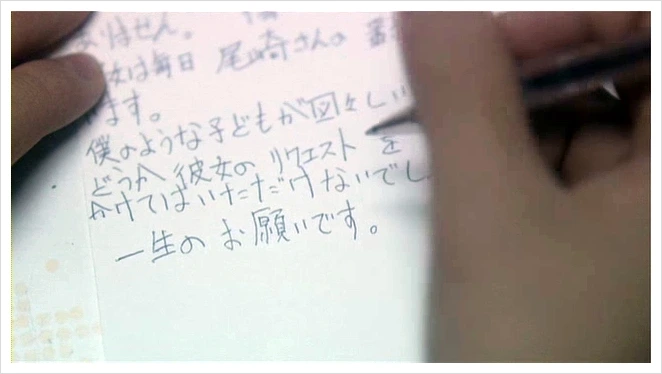 りません。
女は毎日 尾崎さんの 番
ます。
僕のような子どもが図々しい
どうか 彼女の リクエスト を
かけてはいただけないでし
一生の お願いです。